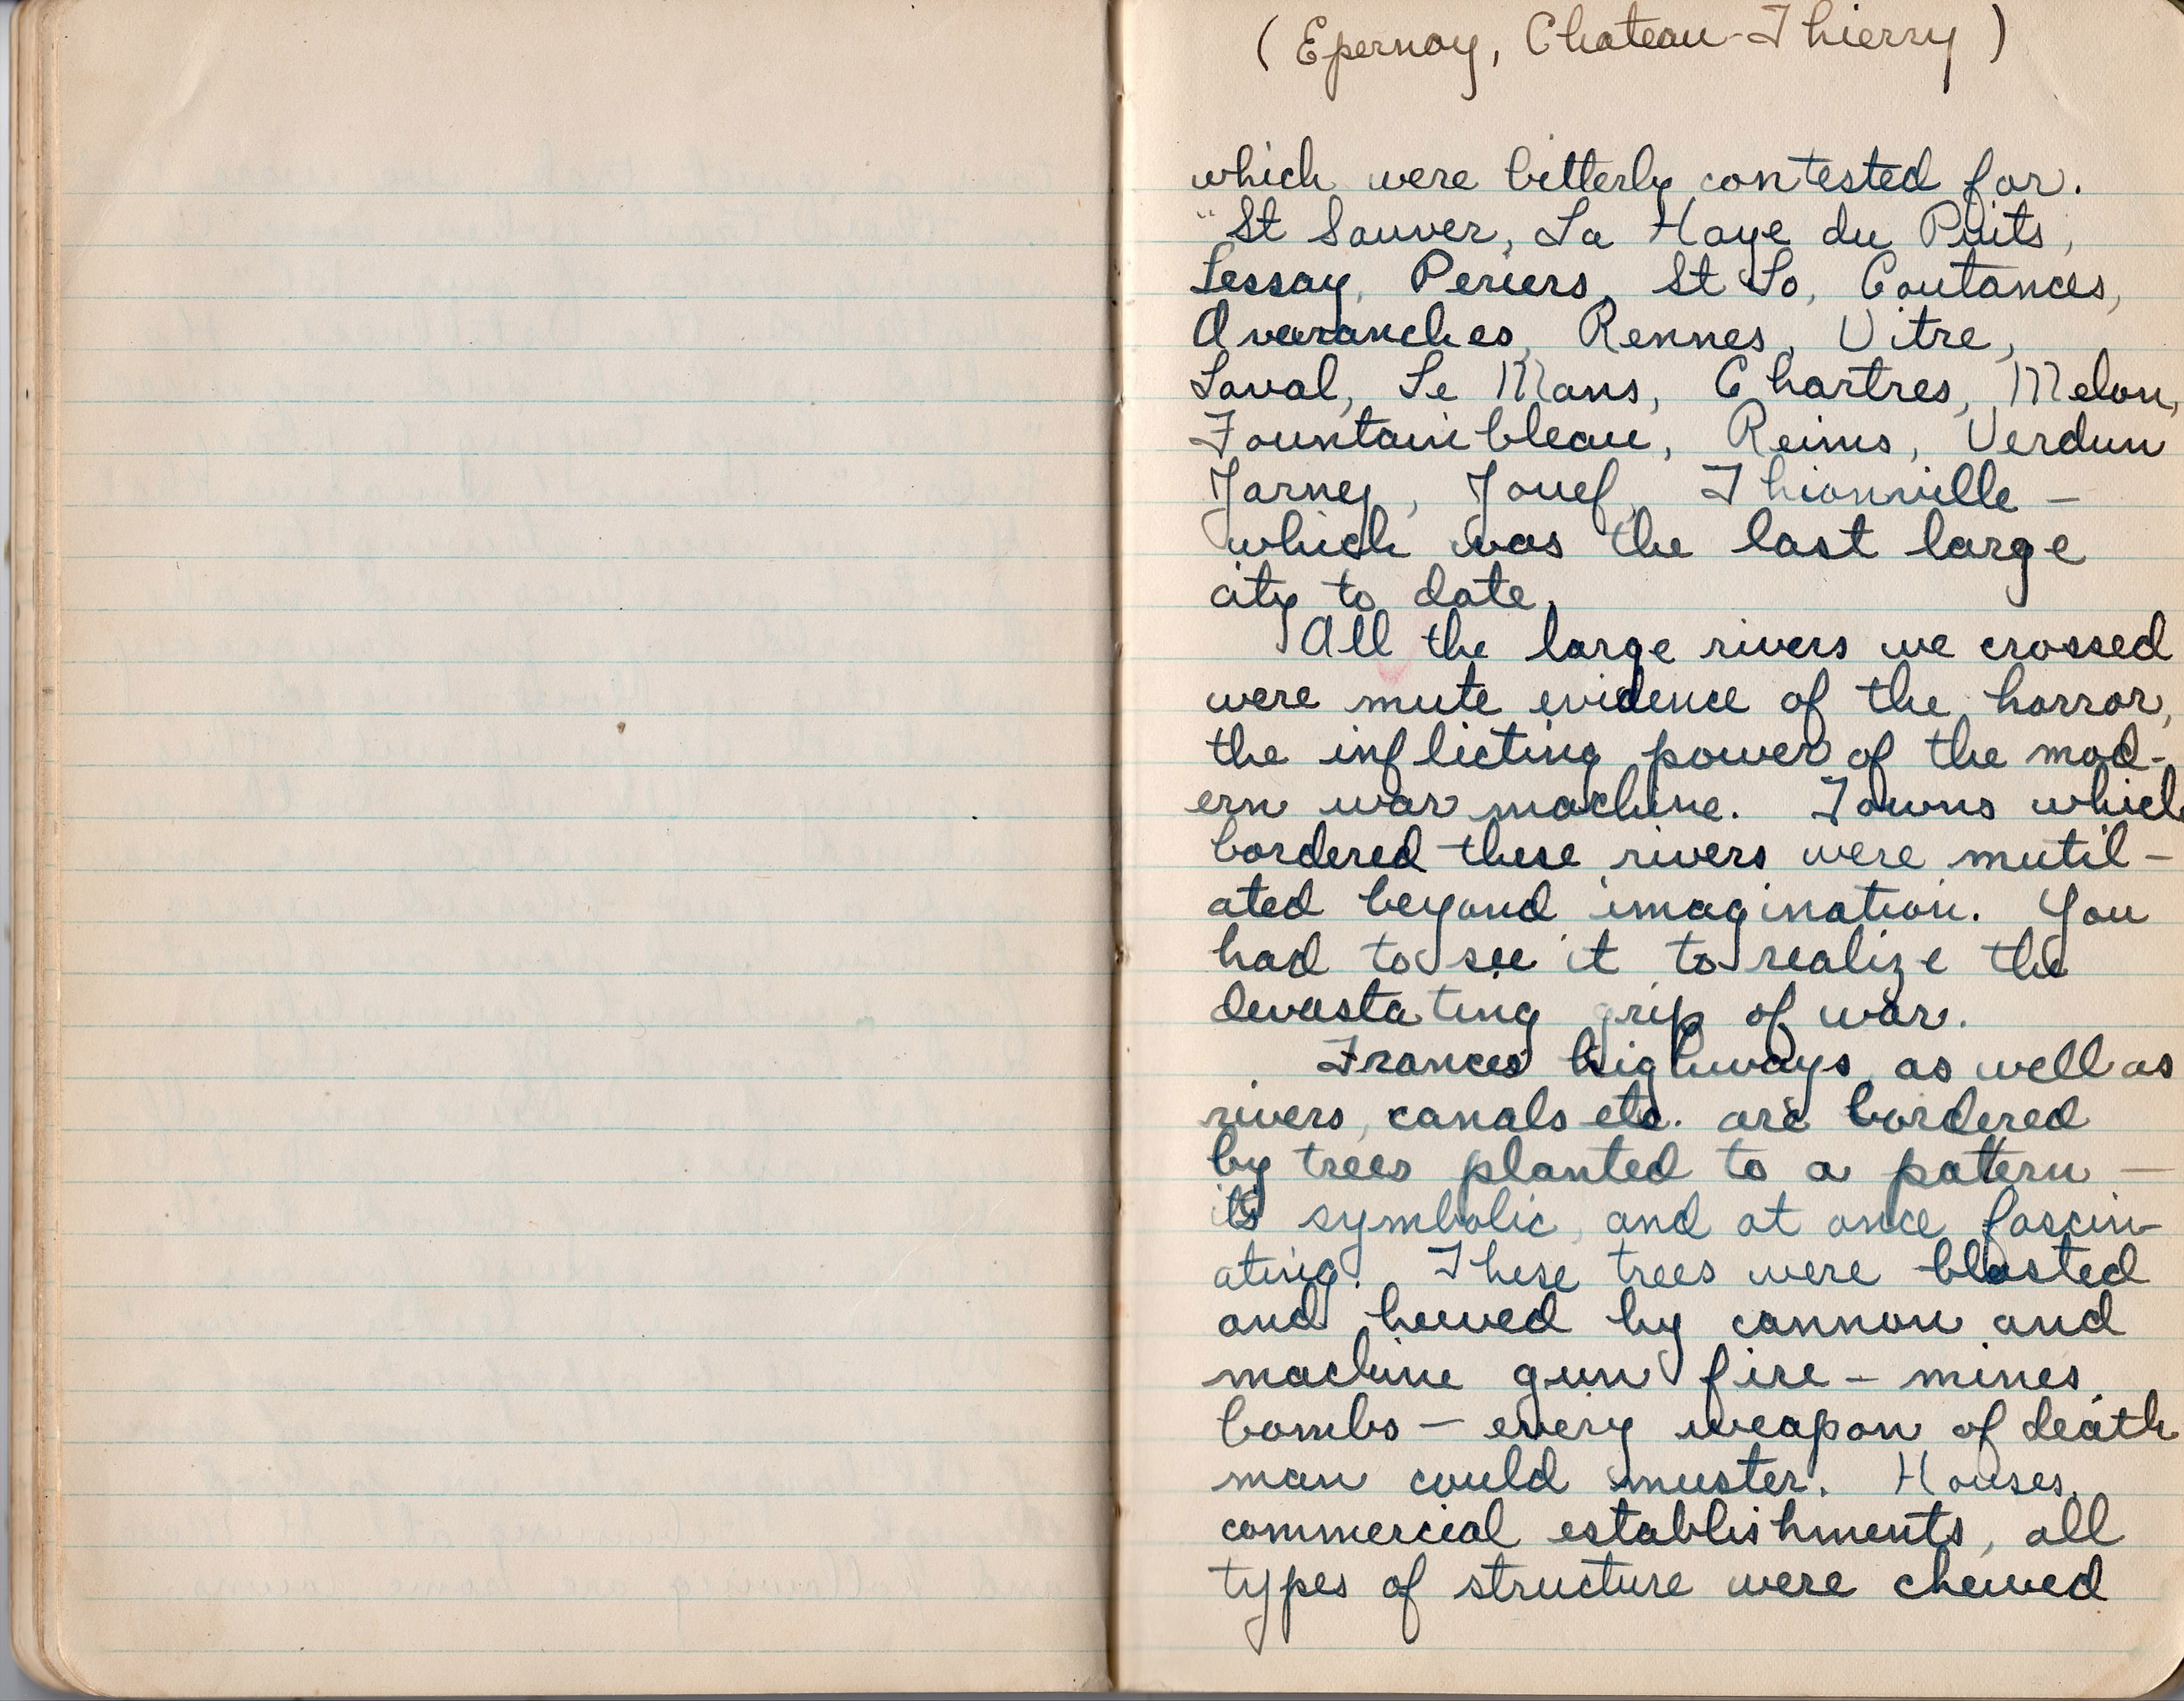 ( Epernay, Chateau-Thierry )
which were bitterly contested for.
"St Sauver, La Haye du Puits,
Lessay, Periers, St Lo, Coutances,
Avaranches, Rennes, Vitre,
Laval, Le Mans, Chartres, Melon,
Fountainbleau, Reims, Verdun
Jarney, Jouef, Thionville –
which was the last large
city to date.
All the large rivers we crossed
were mute evidence of the horror,
the inflicting power of the mod-
ern war machine. Towns which
bordered these rivers were mutil-
ated beyond imagination. You
had to see it to realize the
devastating grip of war.
Frances highways, as well as
rivers, canals etc. are bordered
by trees planted to a pattern –
its symbolic, and at once fascin-
ating. These trees were blasted
and hewed by cannon and
machine gun fire – mines,
bombs – every weapon of death
man could muster. Houses,
commercial establishments, all
types of structure were chewed